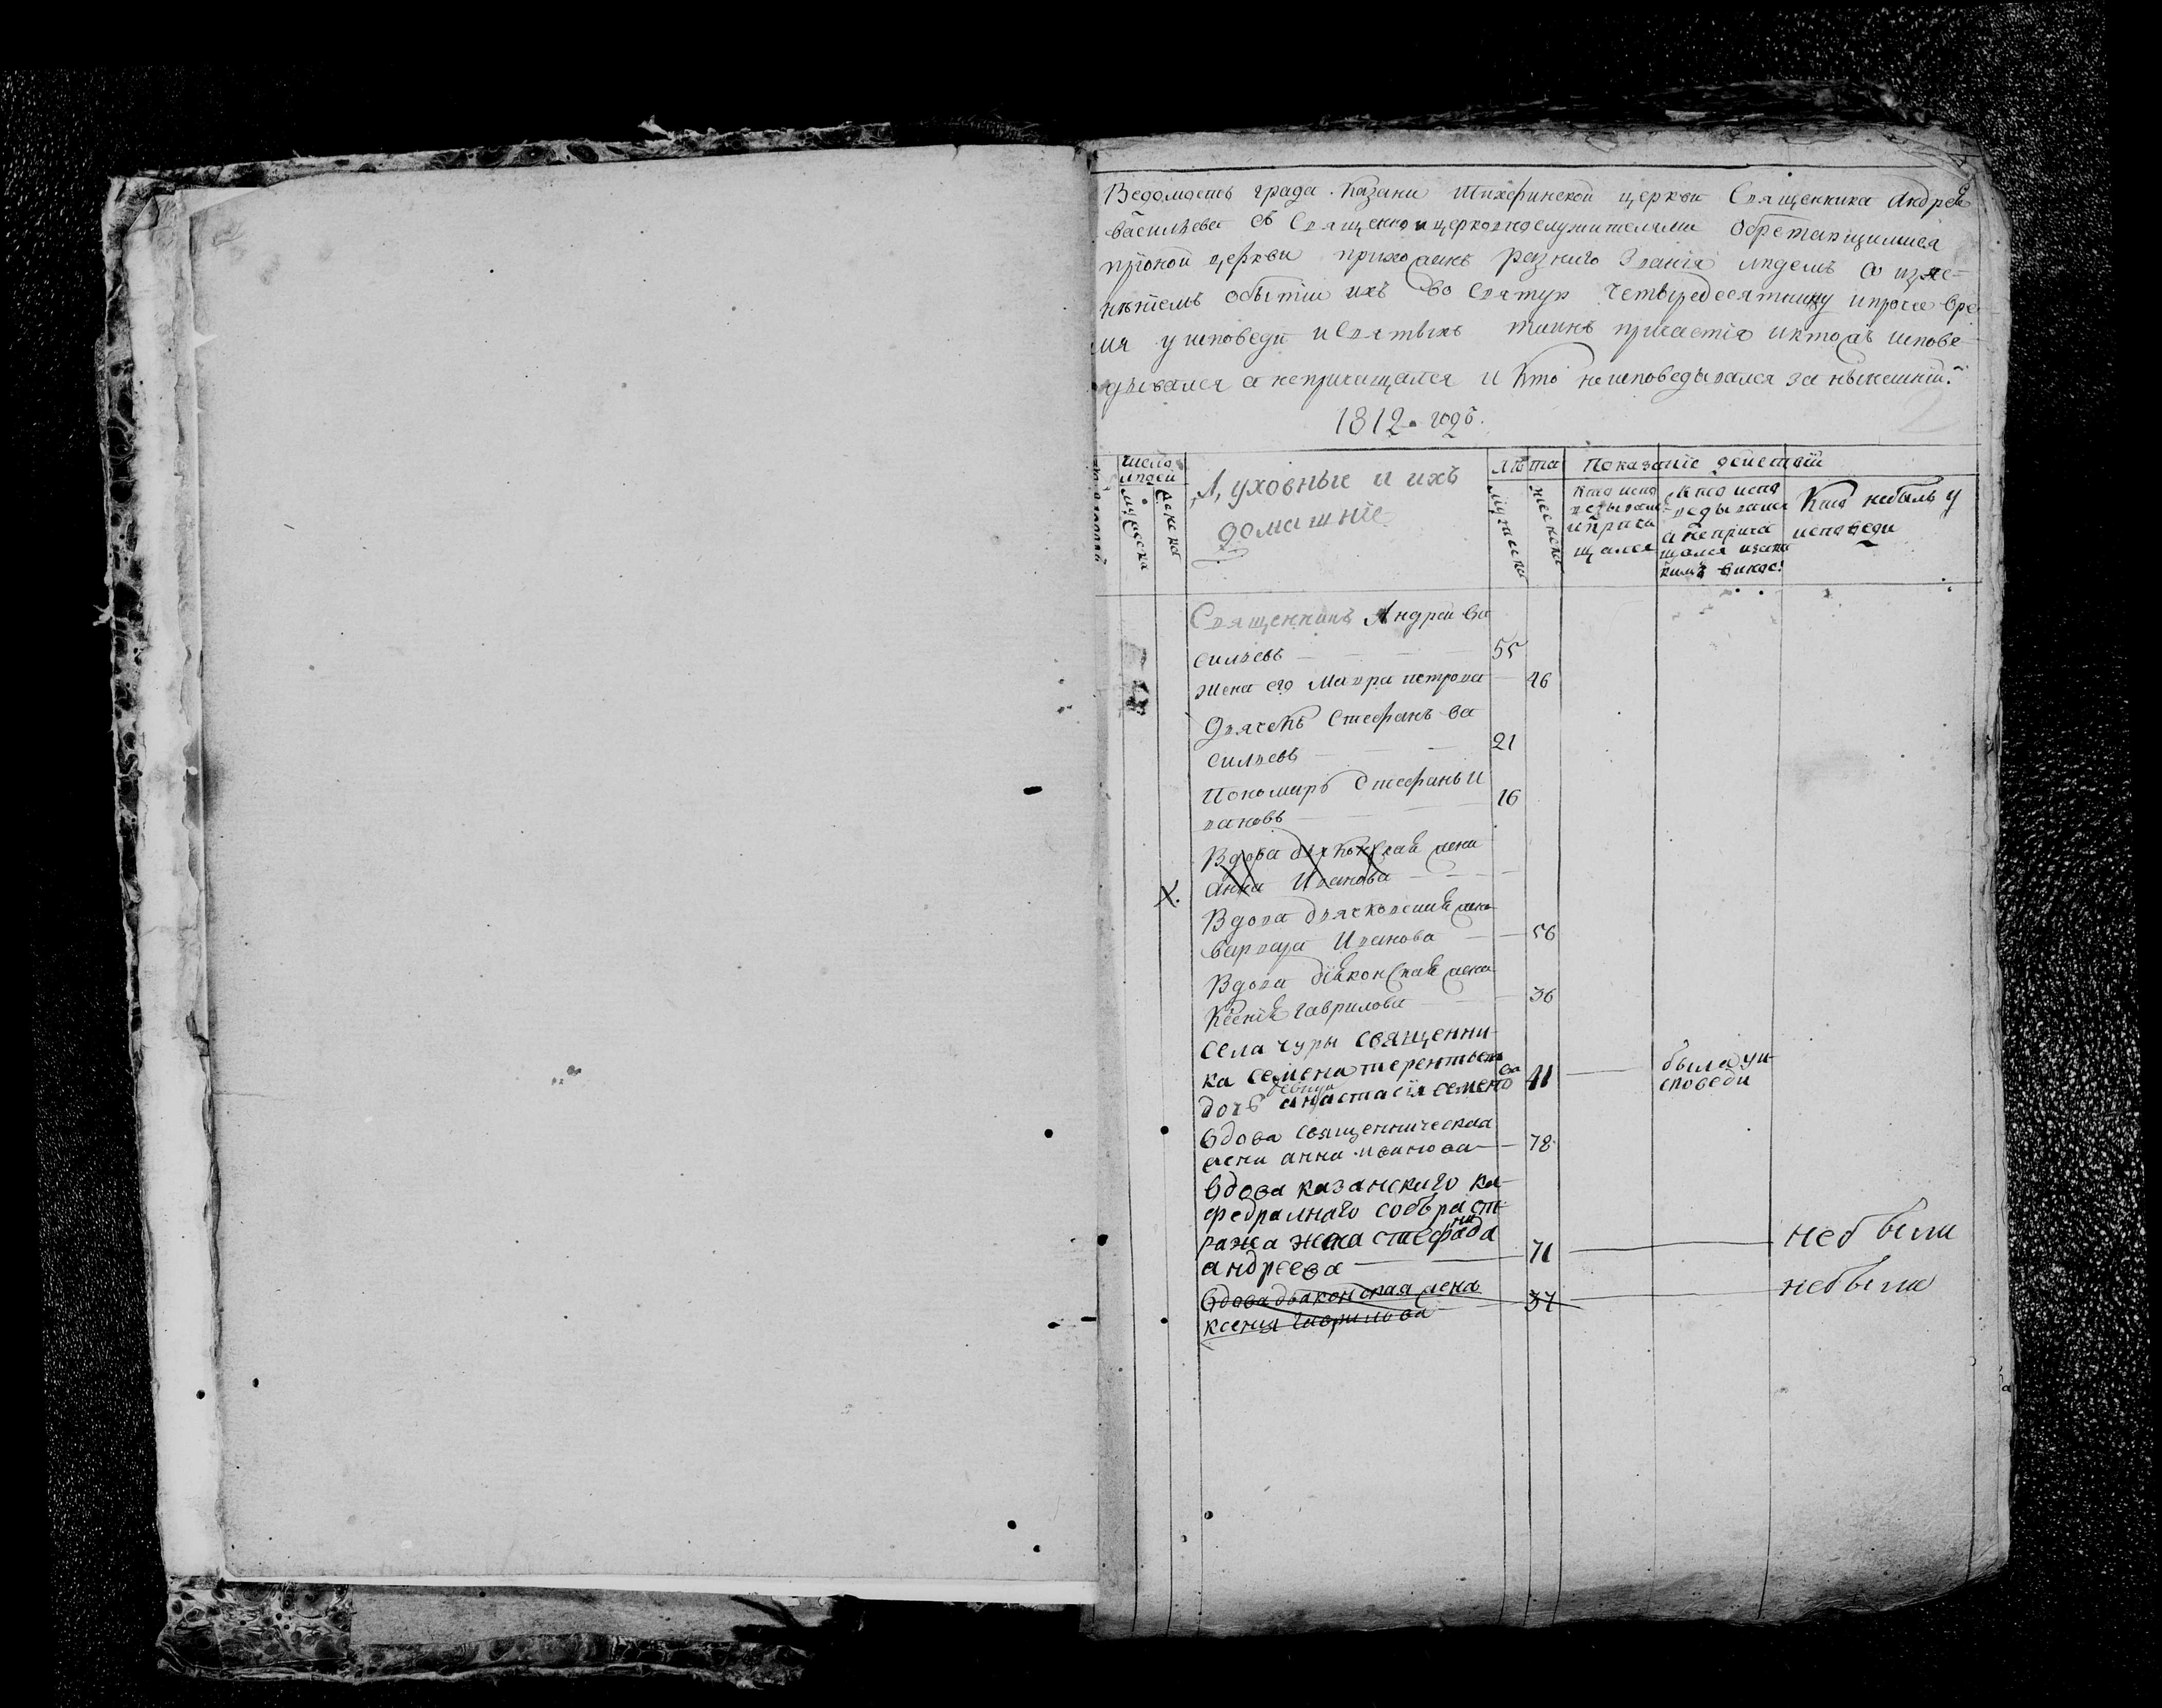 Ведомость града Казани Тихфинской церкви Священника Андрея
Васильева съ Священно и церковнослужителями обретающимися
при оной церкви приходскихъ разнаго звания людемъ со изяс-
нѣниемъ о бытии ихъ во Святую четыредесятницу и прочее вре-
мя у исповеди и Святыхъ таинъ причастия и кто изъ испове-
дывался а непричащался и кто неисповедывался за нынешний
1812 годъ.
число людей
мужеска
женска
Духовные и ихъ
домашние
лѣта
мужеска
женска
Показание действий
Кто испо
ведывал
и прича
щался
Кто испо
ведывался
а неприча
щался и за ка
кимъ винос.
Кто небылъ у
исповеди
Священникъ Андрей Ва
сильевъ 55
жена его Мавра петрова 46
Дьячекъ Стефанъ ва
сильевъ 21
Пономарь Стефанъ И
вановъ 16
Вдова дьяконская жена
анна Иванова
Х.
Вдова дьячковская жена
варвара Иванова 56
Вдова дияконская жена
Ксения гаврилова 36
села чуры священни-
ка семена терентьева
дочь девица анастасия семено
ва 41 была у и-
споведи
вдова священническая
жена анна иванова 78
вдова казанскаго ка-
федралнаго собъра ст-
ража жена стефанида
андреева 71 небыла
вдова дьяконская жена
ксения гаврилова 37 небыла